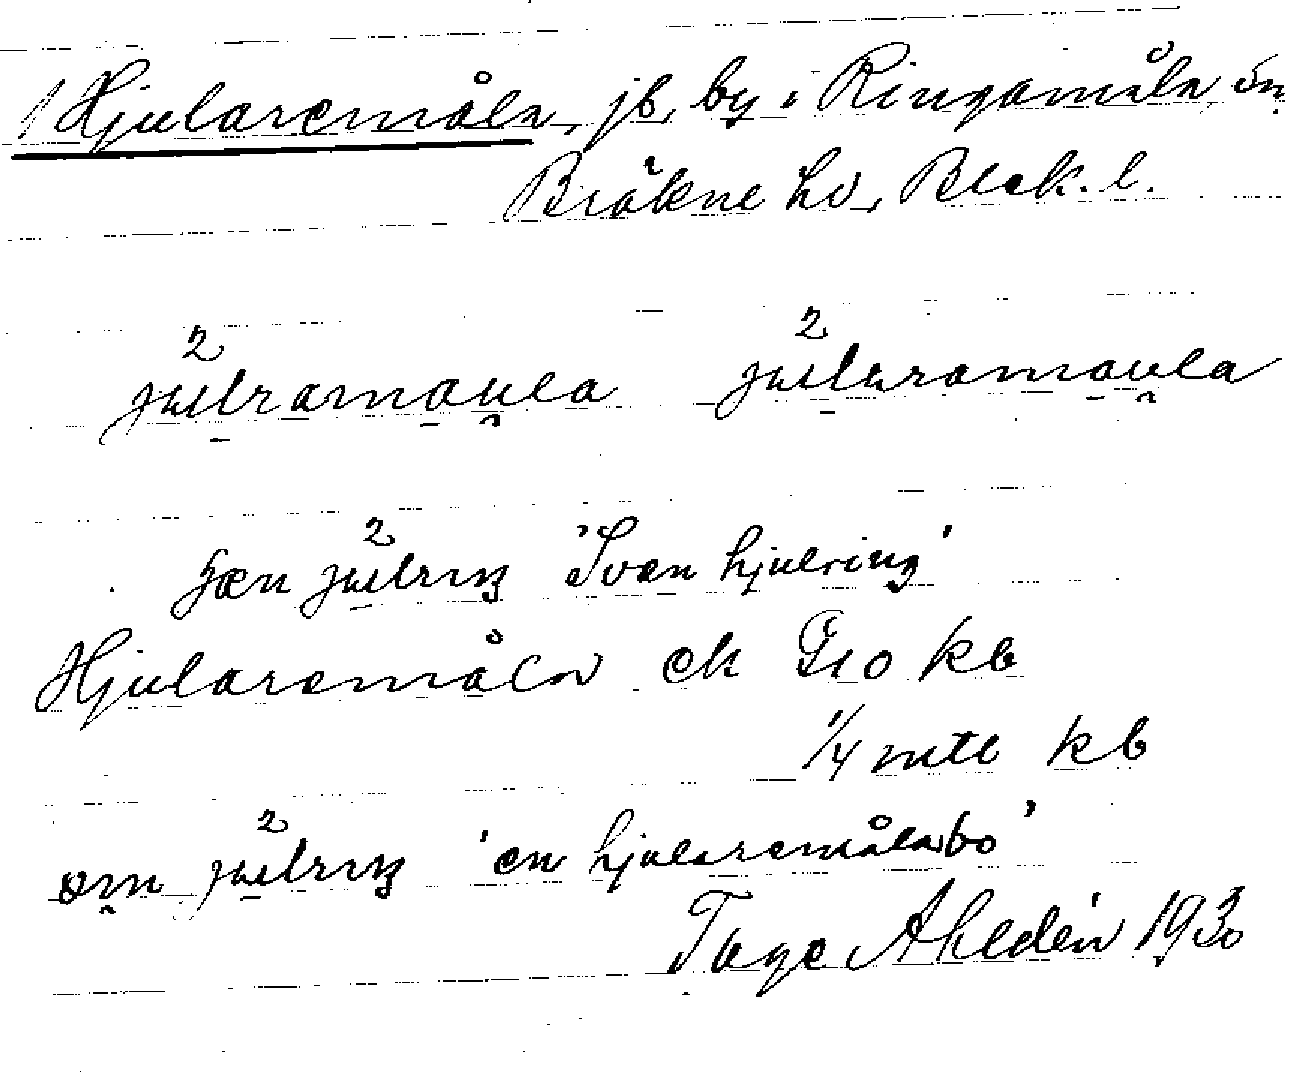 1 Hjularemåla, jb, by i Ringamåla sn
Bräkne hd, Blek. l.
2 2
julramaula julwramaula
2
julrıŋ 'Sven hjulring'
Hjularemåla ek Fro kb
1/4 mtl kb
2
julrıŋ 'en hjularemålabo'
Tage Ahldén 1930